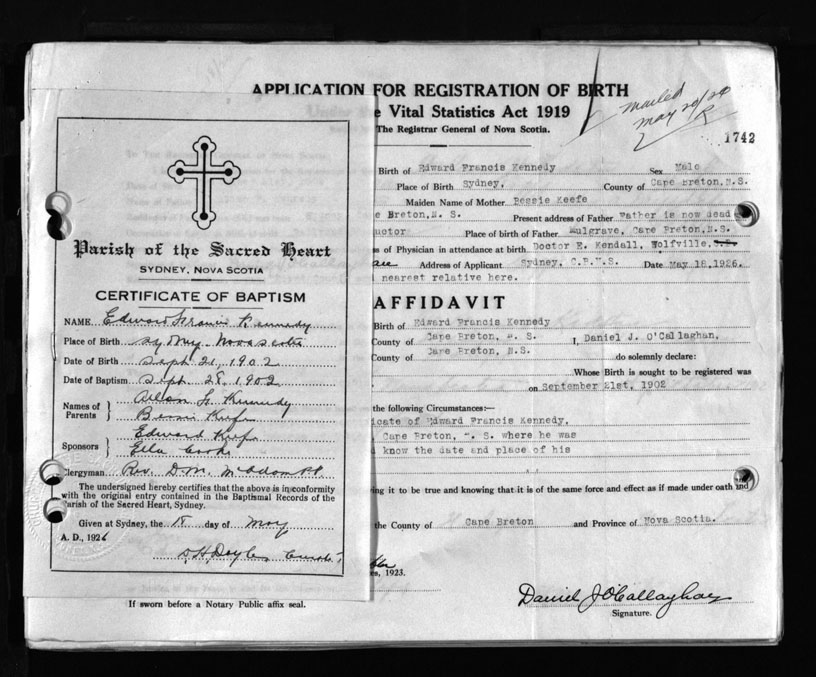 APPLICATION FOR REGISTRATION OF BIRTH
Vital Statistics Act 1919
The Registrar General of Nova Scotia.
mailed
may 20/26
R
1742
Birth of Edward Francis Kennedy Sex Male
Place of Birth Sydney, County of Cape Breton, N.S.
Maiden Name of Mother Bessie Keefe
e Breton, N. S. Present address of Father Father is now dead
uctor Place of birth of Father Mulgrave, Cape Breton, N.S.
s of Physician in attendance at birth Doctor E. Kendall, Wolfville,
Address of Applicant Sydney, C.B.N.S. Date May 18,1926.
nearest relative here.
AFFIDAVIT
Birth of Edward Francis Kennedy
County of Cape Breton, N. S. I, Daniel J. O'Callaghan,
County of Cape Breton, N.S. do solemnly declare:
Whose Birth is sought to be registered was
on September 21st, 1902
the following Circumstances:—
icate of Edward Francis Kennedy,
Cape Breton, N. S. where he was
d know the date and place of his
ing it to be true and knowing that it is of the same force and effect as if made under oath and
the County of Cape Breton and Province of Nova Scotia.
es, 1923.
Daniel J O'Callaghan
Signature.
If sworn before a Notary Public affix seal.
Parish of the Sacred Heart
SYDNEY, NOVA SCOTIA
CERTIFICATE OF BAPTISM
NAME Edward Francis Kennedy
Place of Birth Sydney Nova Scotia
Date of Birth Sept 21, 1902
Date of Baptism Sept. 28, 1902
Names of Parents Allan F Kennedy
Bessie Keefe
Sponsors Edward Keefe
Ella Cooke
Clergyman Rev. D.M.
The undersigned hereby certifies that the above is in conformity
with the original entry contained in the Baptismal Records of the
Parish of the Sacred Heart, Sydney.
Given at Sydney, the 18 day of May
A. D., 1926
Doyle Curate